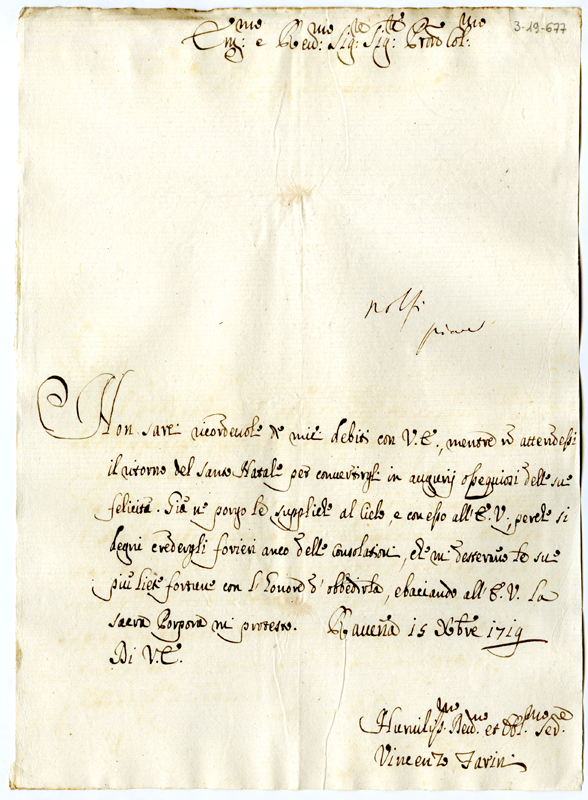 3-19-677
Em:mo e Reu:mo Sig:re Sig:re Pron Col:mo
Non sarei ricordeuole de miei debiti con V.E., mentre nō attendessi
il ritorno del Santo Natale per conuertirgli in augurij ossequiosi delle sue
felicità. Già ne porgo le suppliche al Cielo, e con esso all'E.V., perche si
degni crederegli forieri anco delle Consolationi, che mi desteranno le sue
più liete fortune con l'honore d'obbedirla, e baciando all'E.V. la
Sacra Porpora mi protesto. Rauenna 15 Xbre 1719
Di V.E.
Humiliss:mo Deu:mo et Obl:mo Se:re
Vincenzo